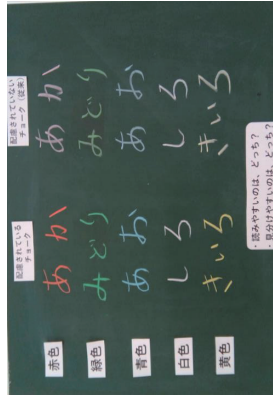 配慮されている
チョーク
配慮されていない
チョーク（従来）
赤色 あか あか
緑色 みどり みどり
青色 あお あお
白色 しろ しろ
黄色 きいろ きいろ
・読みやすいのは、どっち？
・見分けやすいのは、どっち？